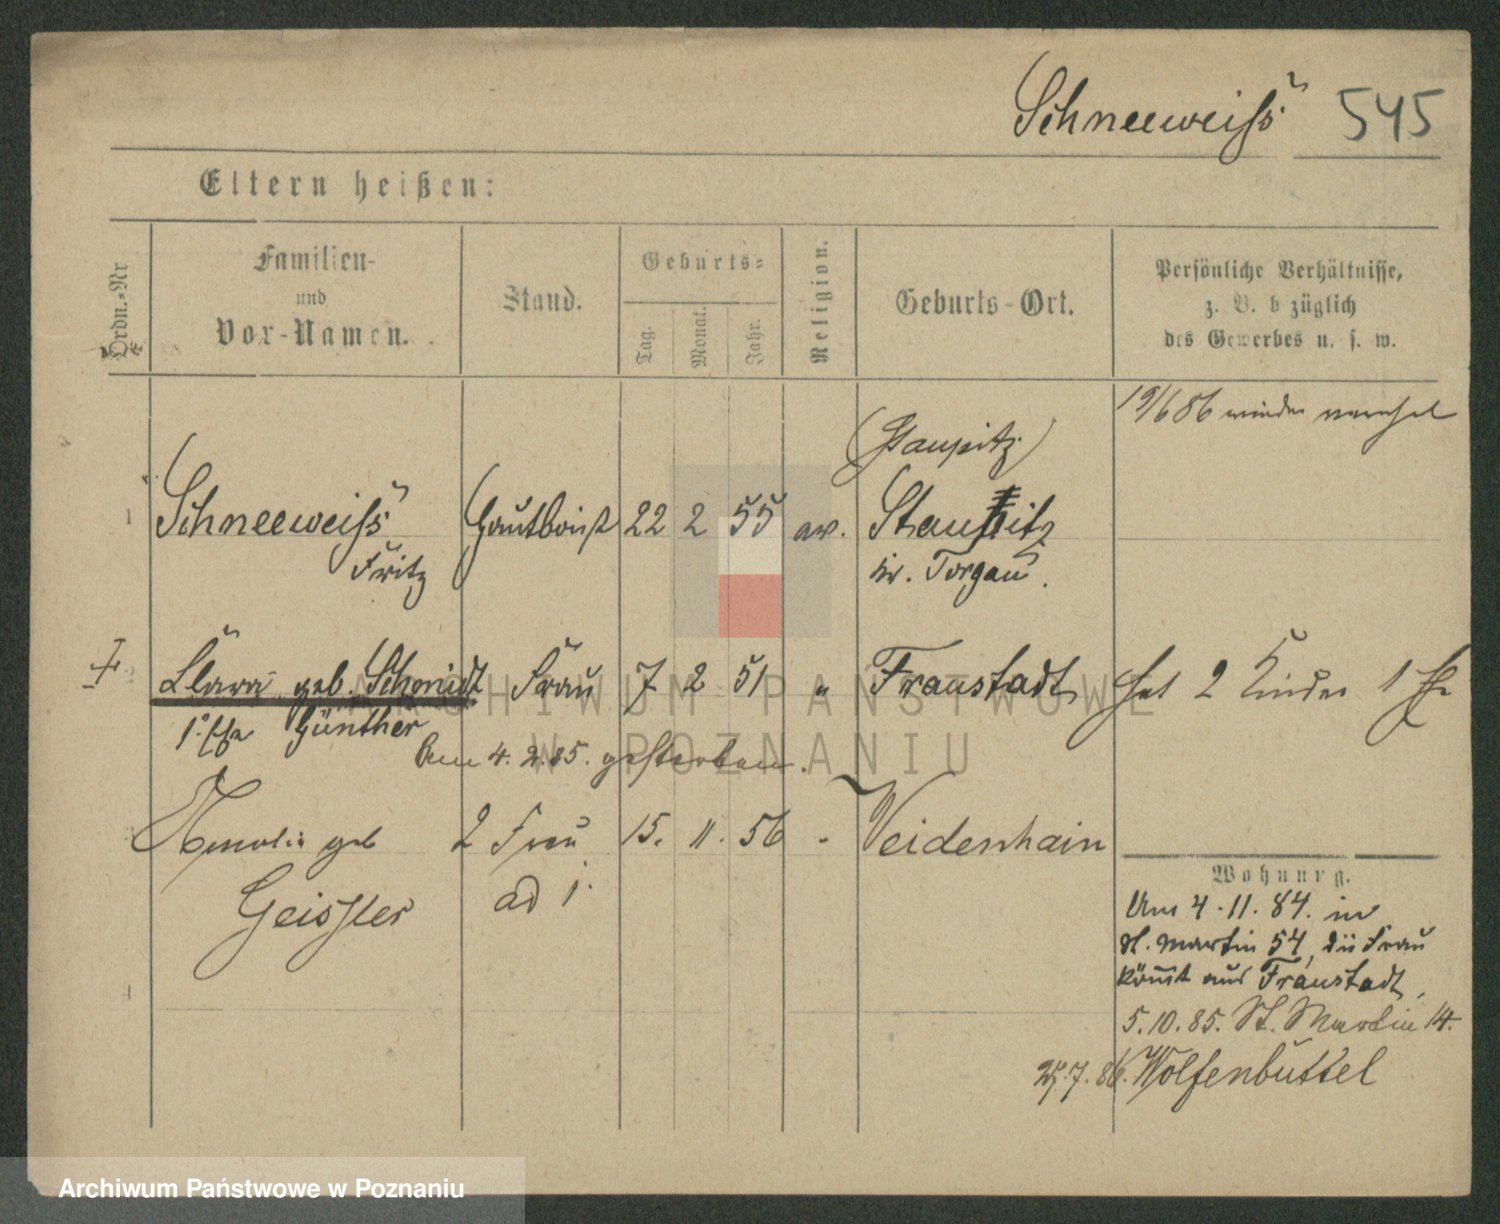 Schneeweiss 545
Eltern heißen:
Ordn.=Nr
Familien-
und
Vor-Namen.
Stand.
Geburts=
Tag.
Monat.
Jahr.
Religion.
Geburts-Ort.
Persönliche Verhältnisse,
z. B. bezüglich
des Gewerbes u. s. w.
19/6 86 wieder verehel
(Staupitz)
Schneeweiss Hautboist 22 2 55 ev. Staupitz
Fritz Kr. Torgau.
Clara geb. Schmidt Frau 7 2 51 " Fraustadt hat 2 Kinder 1 Ehe
1. Ehe Günther
Am 4. 2. 85. gestorben.
Amalie geb 2 Frau 15. 11. 56 " Weidenhain
Geissler ad 1.
Wohnung.
Am 4.11.84. in
St. Martin 54, die Frau
kommt aus Fraustadt,
5.10.85. St. Martin 14.
7. 86. Wolfenbüttel
ARCHIWUM PAŃSTWOWE
W POZNANIU
Archiwum Państwowe w Poznaniu